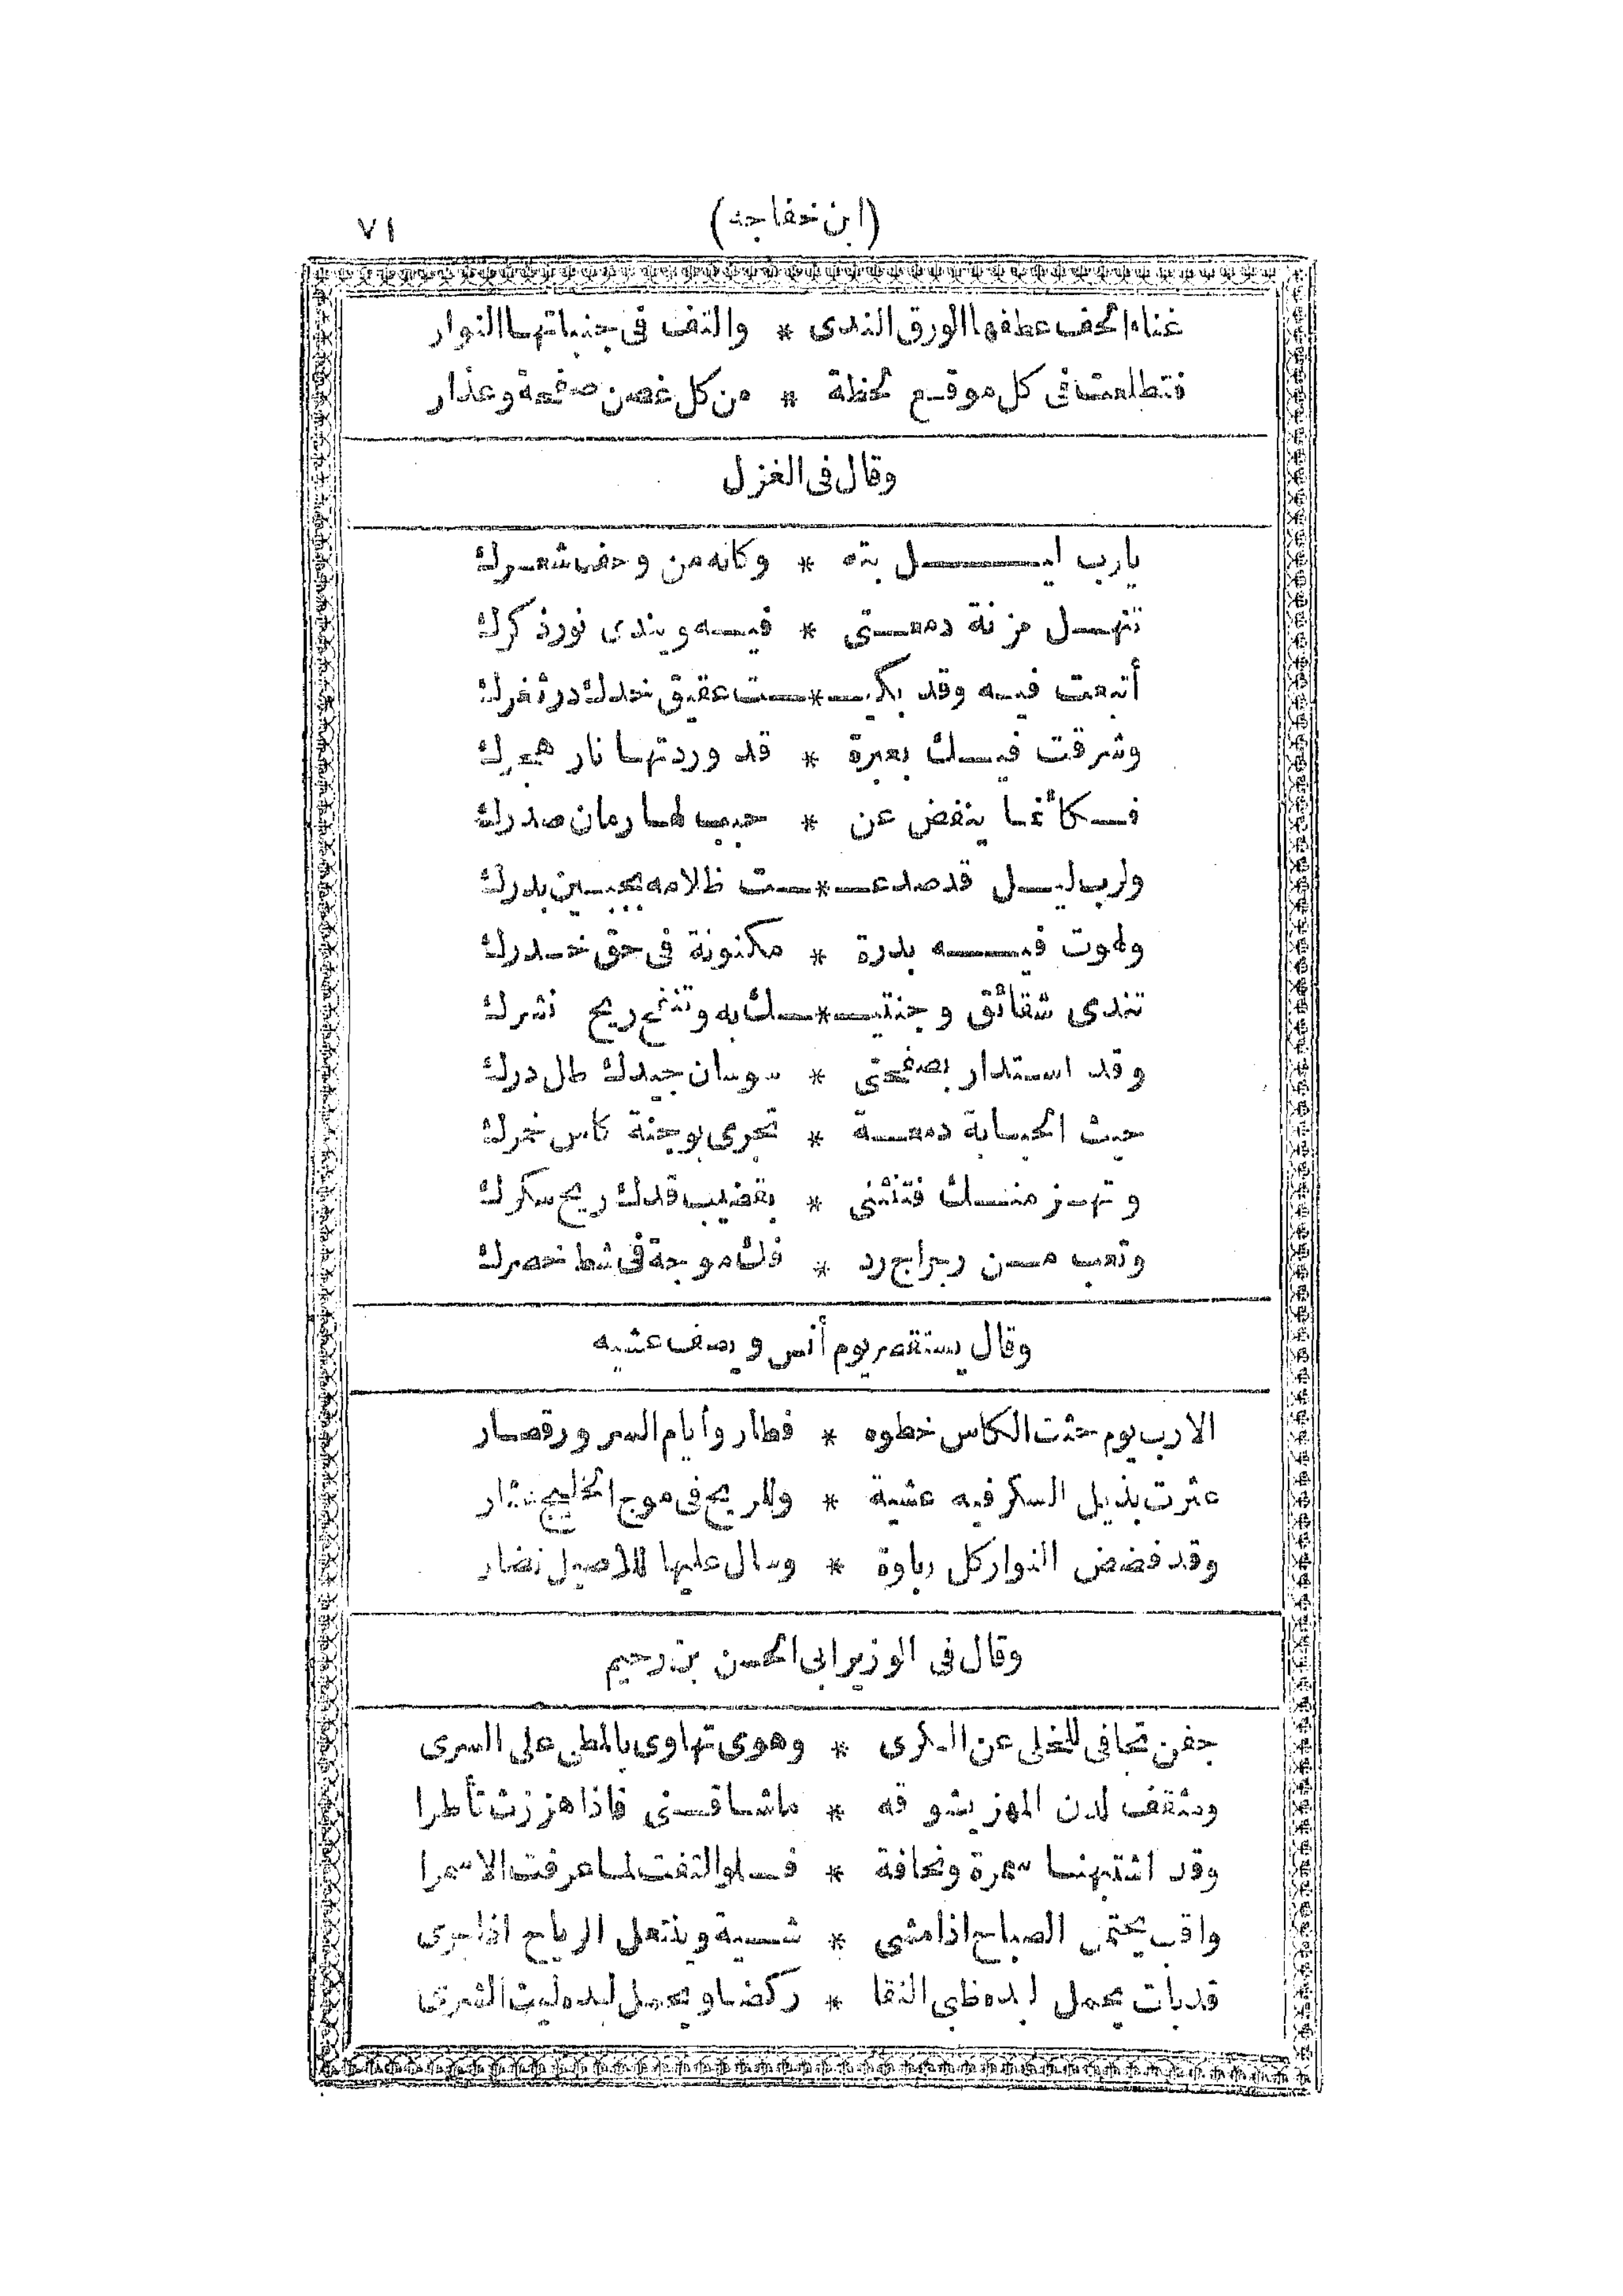 (ابن خفاجه) ٧١
غناء الحف عطفها الورق الندى * والتف فى جنباتها النوار
فتطلعت فى كل موقع لحظة * من كل غصن صفحة وعذار
وقال فى الغزل
يارب ليل بته * وكانه من وحف شعرك
تنهل مزنة دمعتى * فيه ويندى نور ذكرك
أتبعت فيه وقد بكيـ * ـت عقيق خدك در ثغرك
وشرقت فيك بعبرة * قد وردتها نار هجرك
فكأنما ينفض عن * حبب لها رمان صدرك
ولرب ليل قد صدعـ * ـت ظلامه بجبين بدرك
ولهوت فيه بدرة * مكنونة فى حق خدرك
تندى شقائق وجنتيـ * ـك به وتنفح ريح نشرك
وقد استدار بصفحتى * سوسان جيدك طل درك
حيث الحبابة دمعة * تجرى بوجنة كاس خمرك
وتهز منك فتنثنى * بقضيب قدك ريح سكرك
وتعب من رجراج رد * فك موجة فى شط خصرك
وقال يستقصر يوم أنس ويصف عشيه
الارب يوم حثت الكاس خطوه * فطار وأيام السرور قصار
عثرت بذيل السكر فيه عشية * وللريح فى موج الخليج عثار
وقد فضض النوار كل رباوة * وسال عليها للاصيل نضار
وقال فى الوزير ابى الحسن بن رحيم
جفن تجافى للخلى عن الكرى * وهوى تهاوى بالمطى على السرى
ومثقف لدن المهز يشوقه * ماشاقنى فاذا هززت تأطرا
وقد اشتبهنا سمرة ونحافة * فلو التفت لما عرفت الاسمرا
واقب يحتمل الصباح اذا مشى * شية وينتعل الرياح اذا جرى
قد بات يحمل لبده ظبى النقا * ركضا ويحمل لبده ليث الشرى